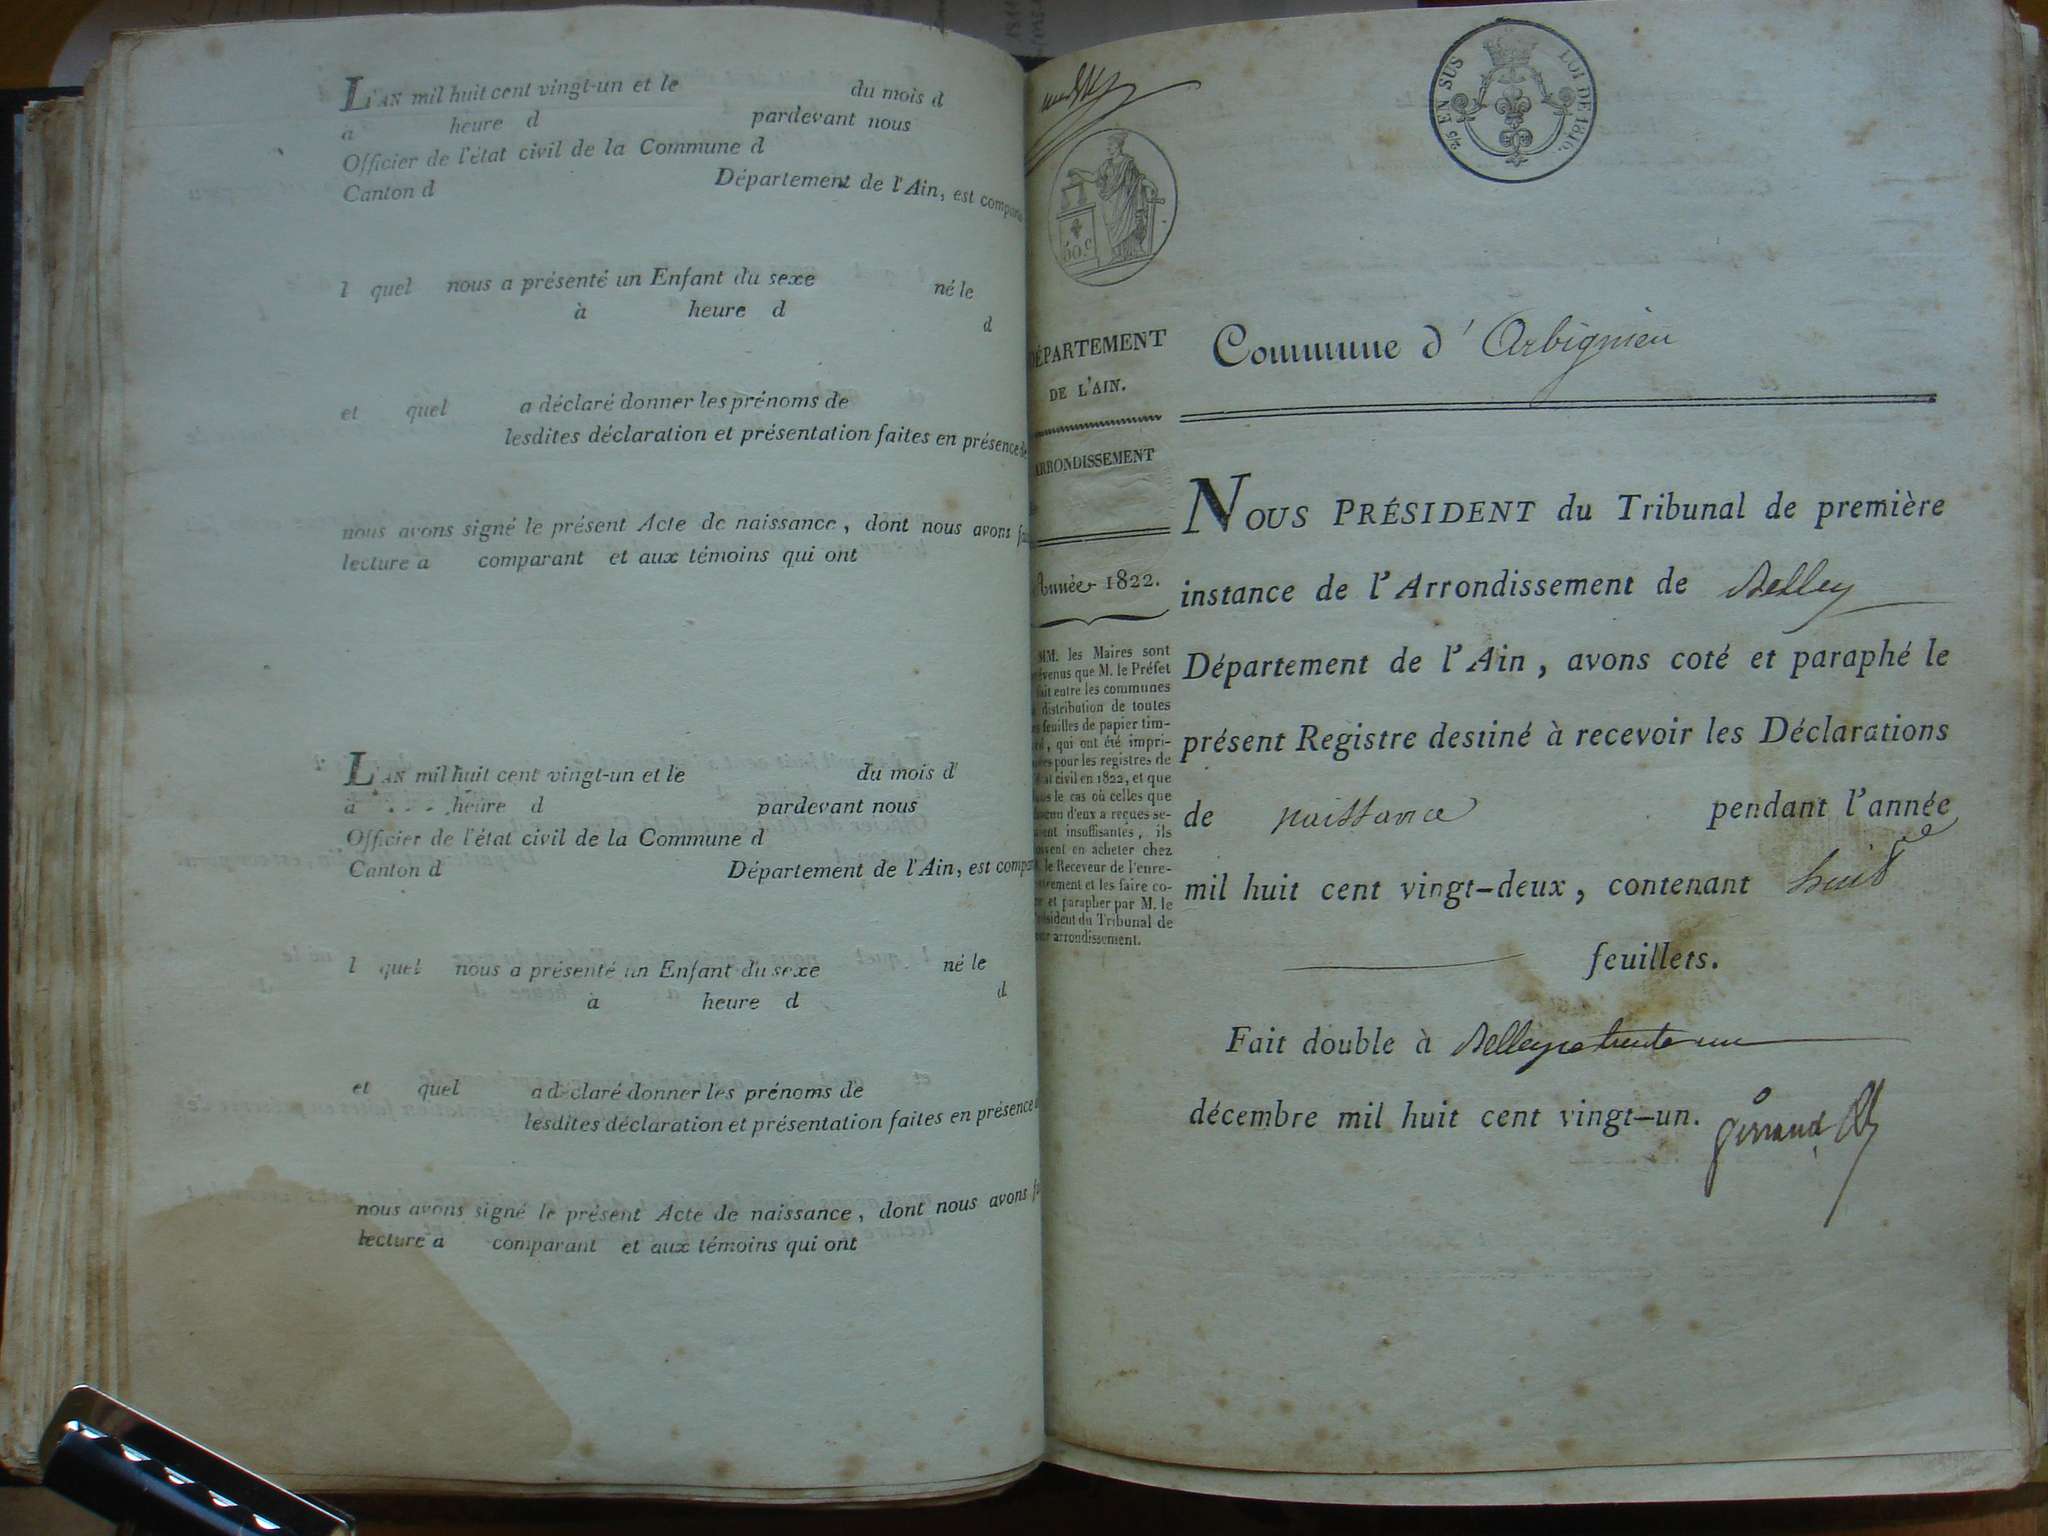 L'AN mil huit cent vingt-un et le du mois d
à heure d pardevant nous
Officier de l'état civil de la Commune d
Canton d Département de l'Ain, est compar
l quel nous a présenté un Enfant du sexe né le
à heure d d
et quel a déclaré donner les prénoms de
lesdites déclaration et présentation faites en présence de
nous avons signé le présent Acte de naissance, dont nous avons fai
lecture a comparant et aux témoins qui ont
L'AN mil huit cent vingt-un et le du mois d
à heure d pardevant nous
Officier de l'état civil de la Commune d
Canton d Département de l'Ain, est compar
l quel nous a présenté un Enfant du sexe né le
à heure d d
et quel a déclaré donner les prénoms de
lesdites déclaration et présentation faites en présence
nous avons signé le présent Acte de naissance, dont nous avons fa
lecture a comparant et aux témoins qui ont
2/5 EN SUS LOI DE 1816.
50.c
DÉPARTEMENT
DE L'AIN.
ARRONDISSEMENT
Année 1822.
MM. les Maires sont
évenus que M. le Préfet
fait entre les communes
distribution de toutes
feuilles de papier tim-
, qui ont été impri-
es pour les registres de
at civil en 1822, et que
s le cas où celles que
acun d'eux a reçues se-
ient insuffisantes, ils
uvent en acheter chez
le Receveur de l'enre-
trement et les faire co-
er et parapher par M. le
résident du Tribunal de
ur arrondissement.
Commune d'Arbignieu
NOUS PRÉSIDENT du Tribunal de première
instance de l'Arrondissement de Belley
Département de l'Ain, avons coté et paraphé le
présent Registre destiné à recevoir les Déclarations
de naissance pendant l'année
mil huit cent vingt-deux, contenant huit
feuillets.
Fait double à Belley ce trente un
décembre mil huit cent vingt-un.